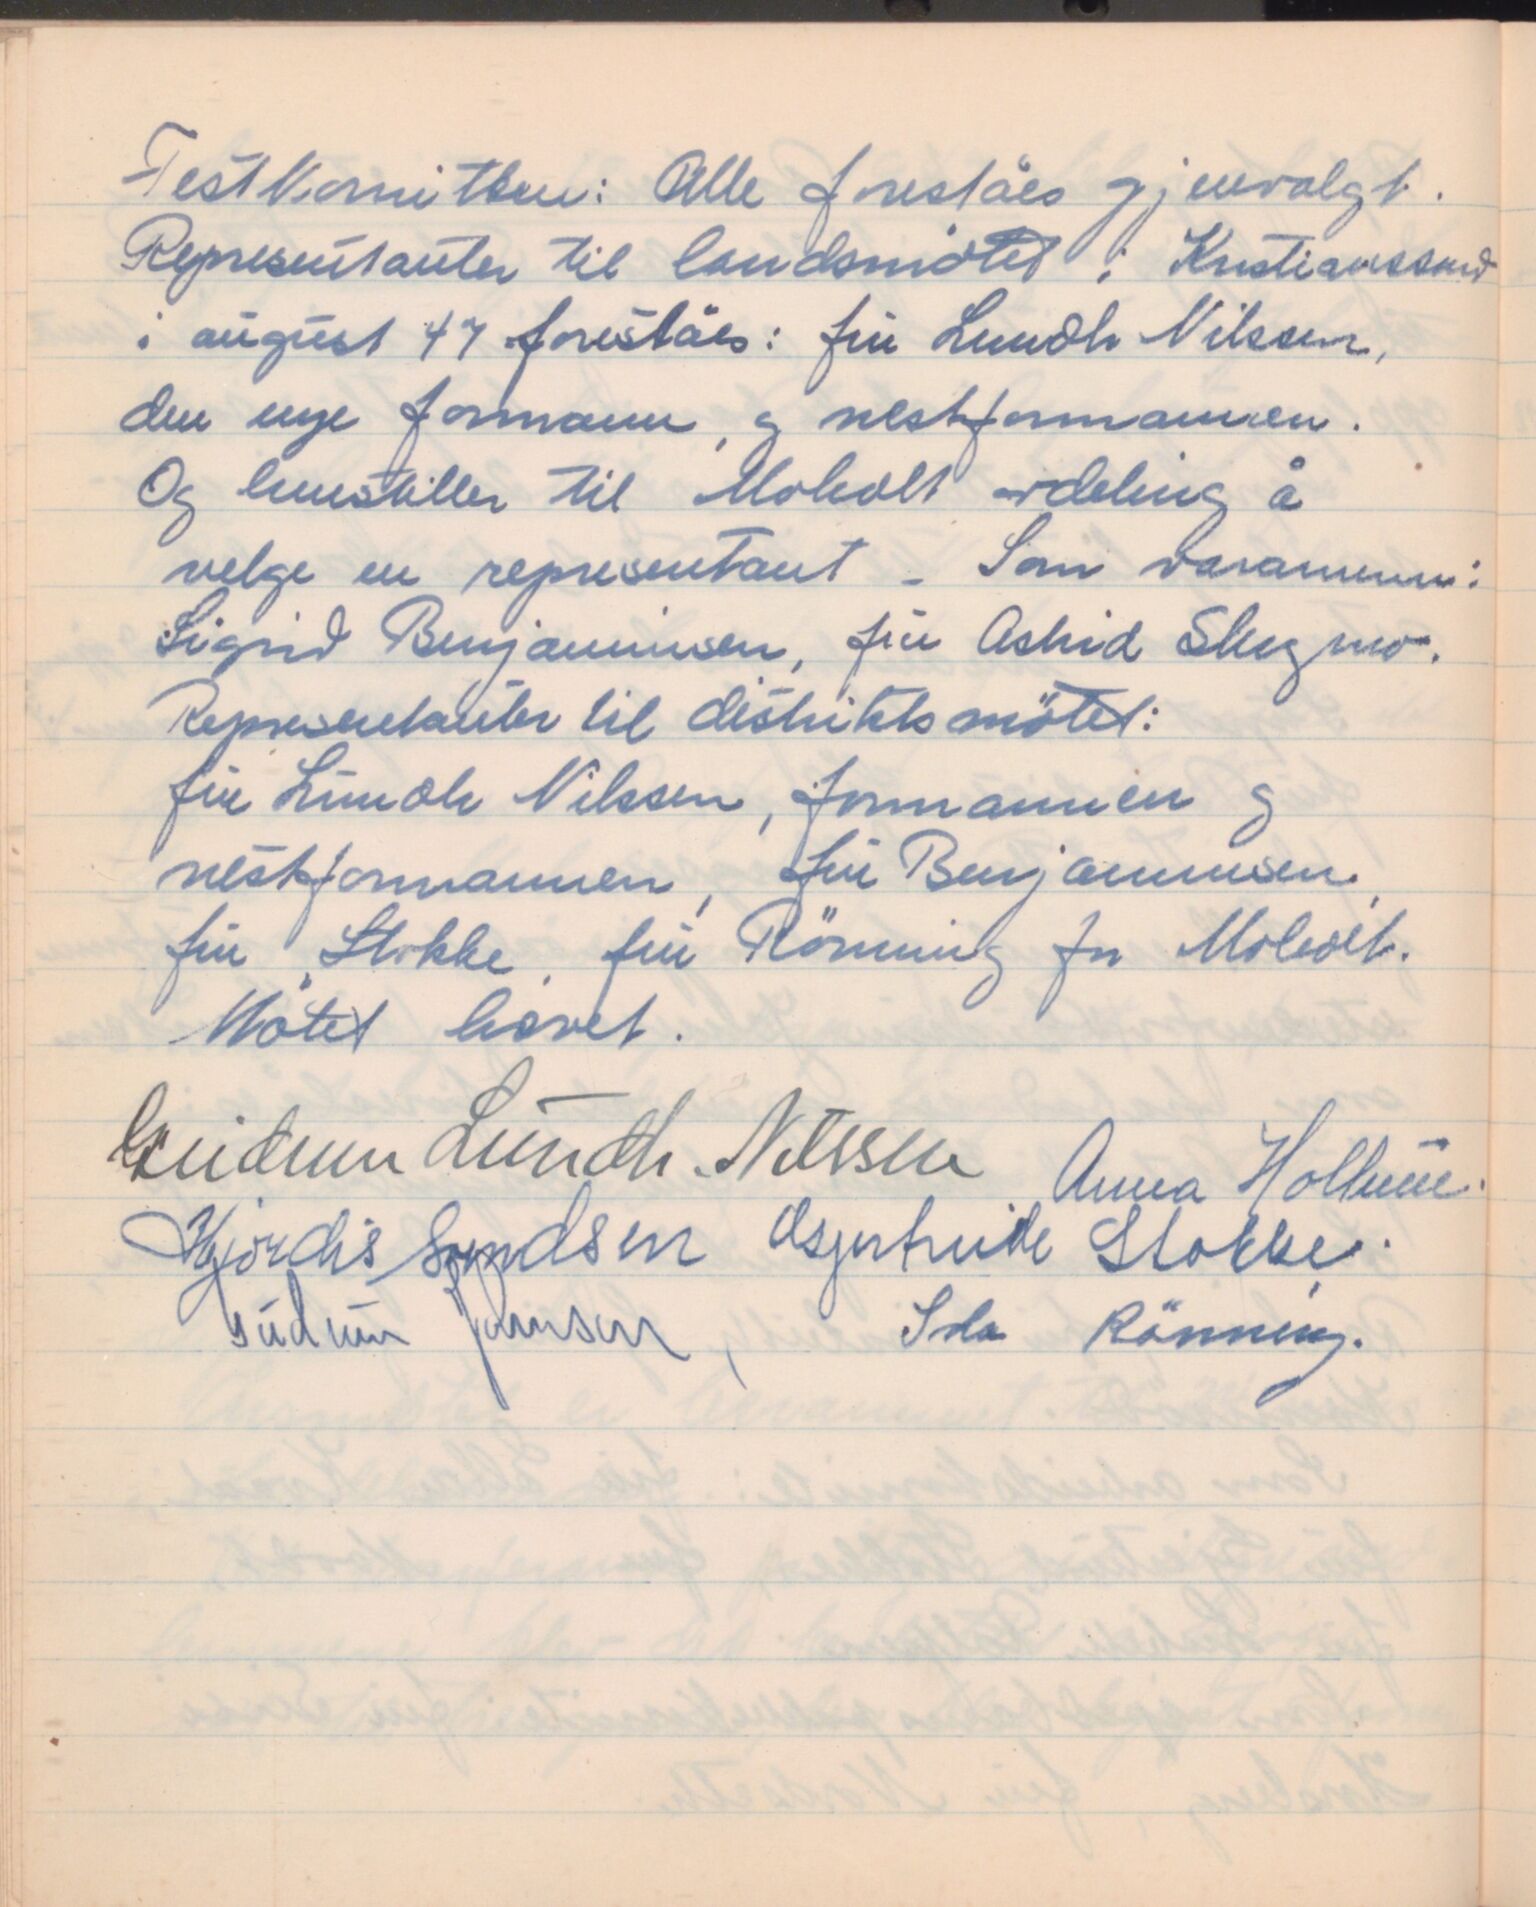 Festkomitten: Alle forestås gjenvalgt.
Representanter til landsmøtet i Kristianssund
i august 47 forestås: fru Lundh Nilssen,
den nye formann, og nestformannen.
Og henstiller til Moholt avdeling å
velge en representant – Som varamenn:
Sigrid Benjaminsen, fru Astrid Skogmo.
Representanter til distriktsmötet:
fru Lundh Nilssen, formannen og
nestformannen, fru Benjaminsen,
fru Stokke, fru Rönning fra Moholt.
Mötet hevet.
Gudrun Lundh-Nilssen Anna Hollum.
Hjördis Svendsen Asgjertrude Stokke.
Gudrun Johnsen, Ida Rönning.